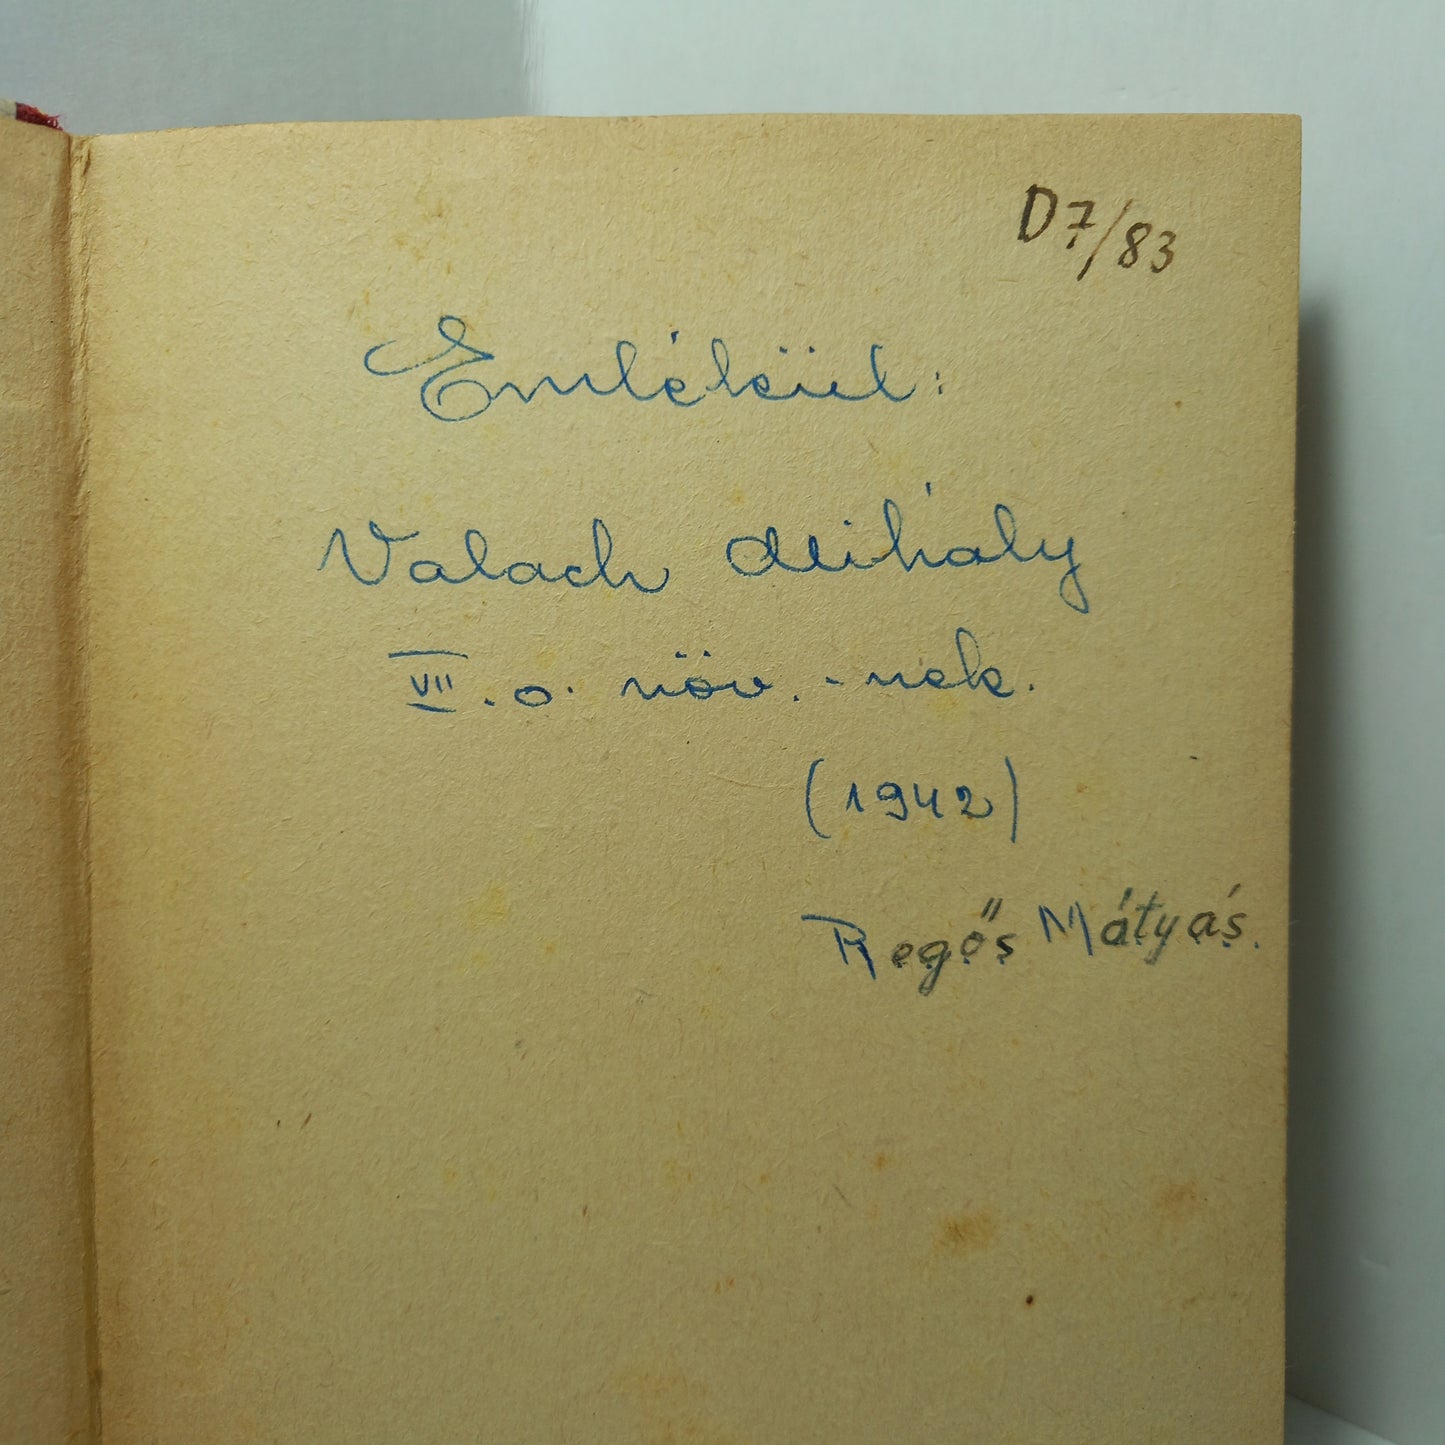 D7/83
Emlékül:
Valach Mihály
VII. o. növ.-nek.
(1942)
Regős Mátyás.